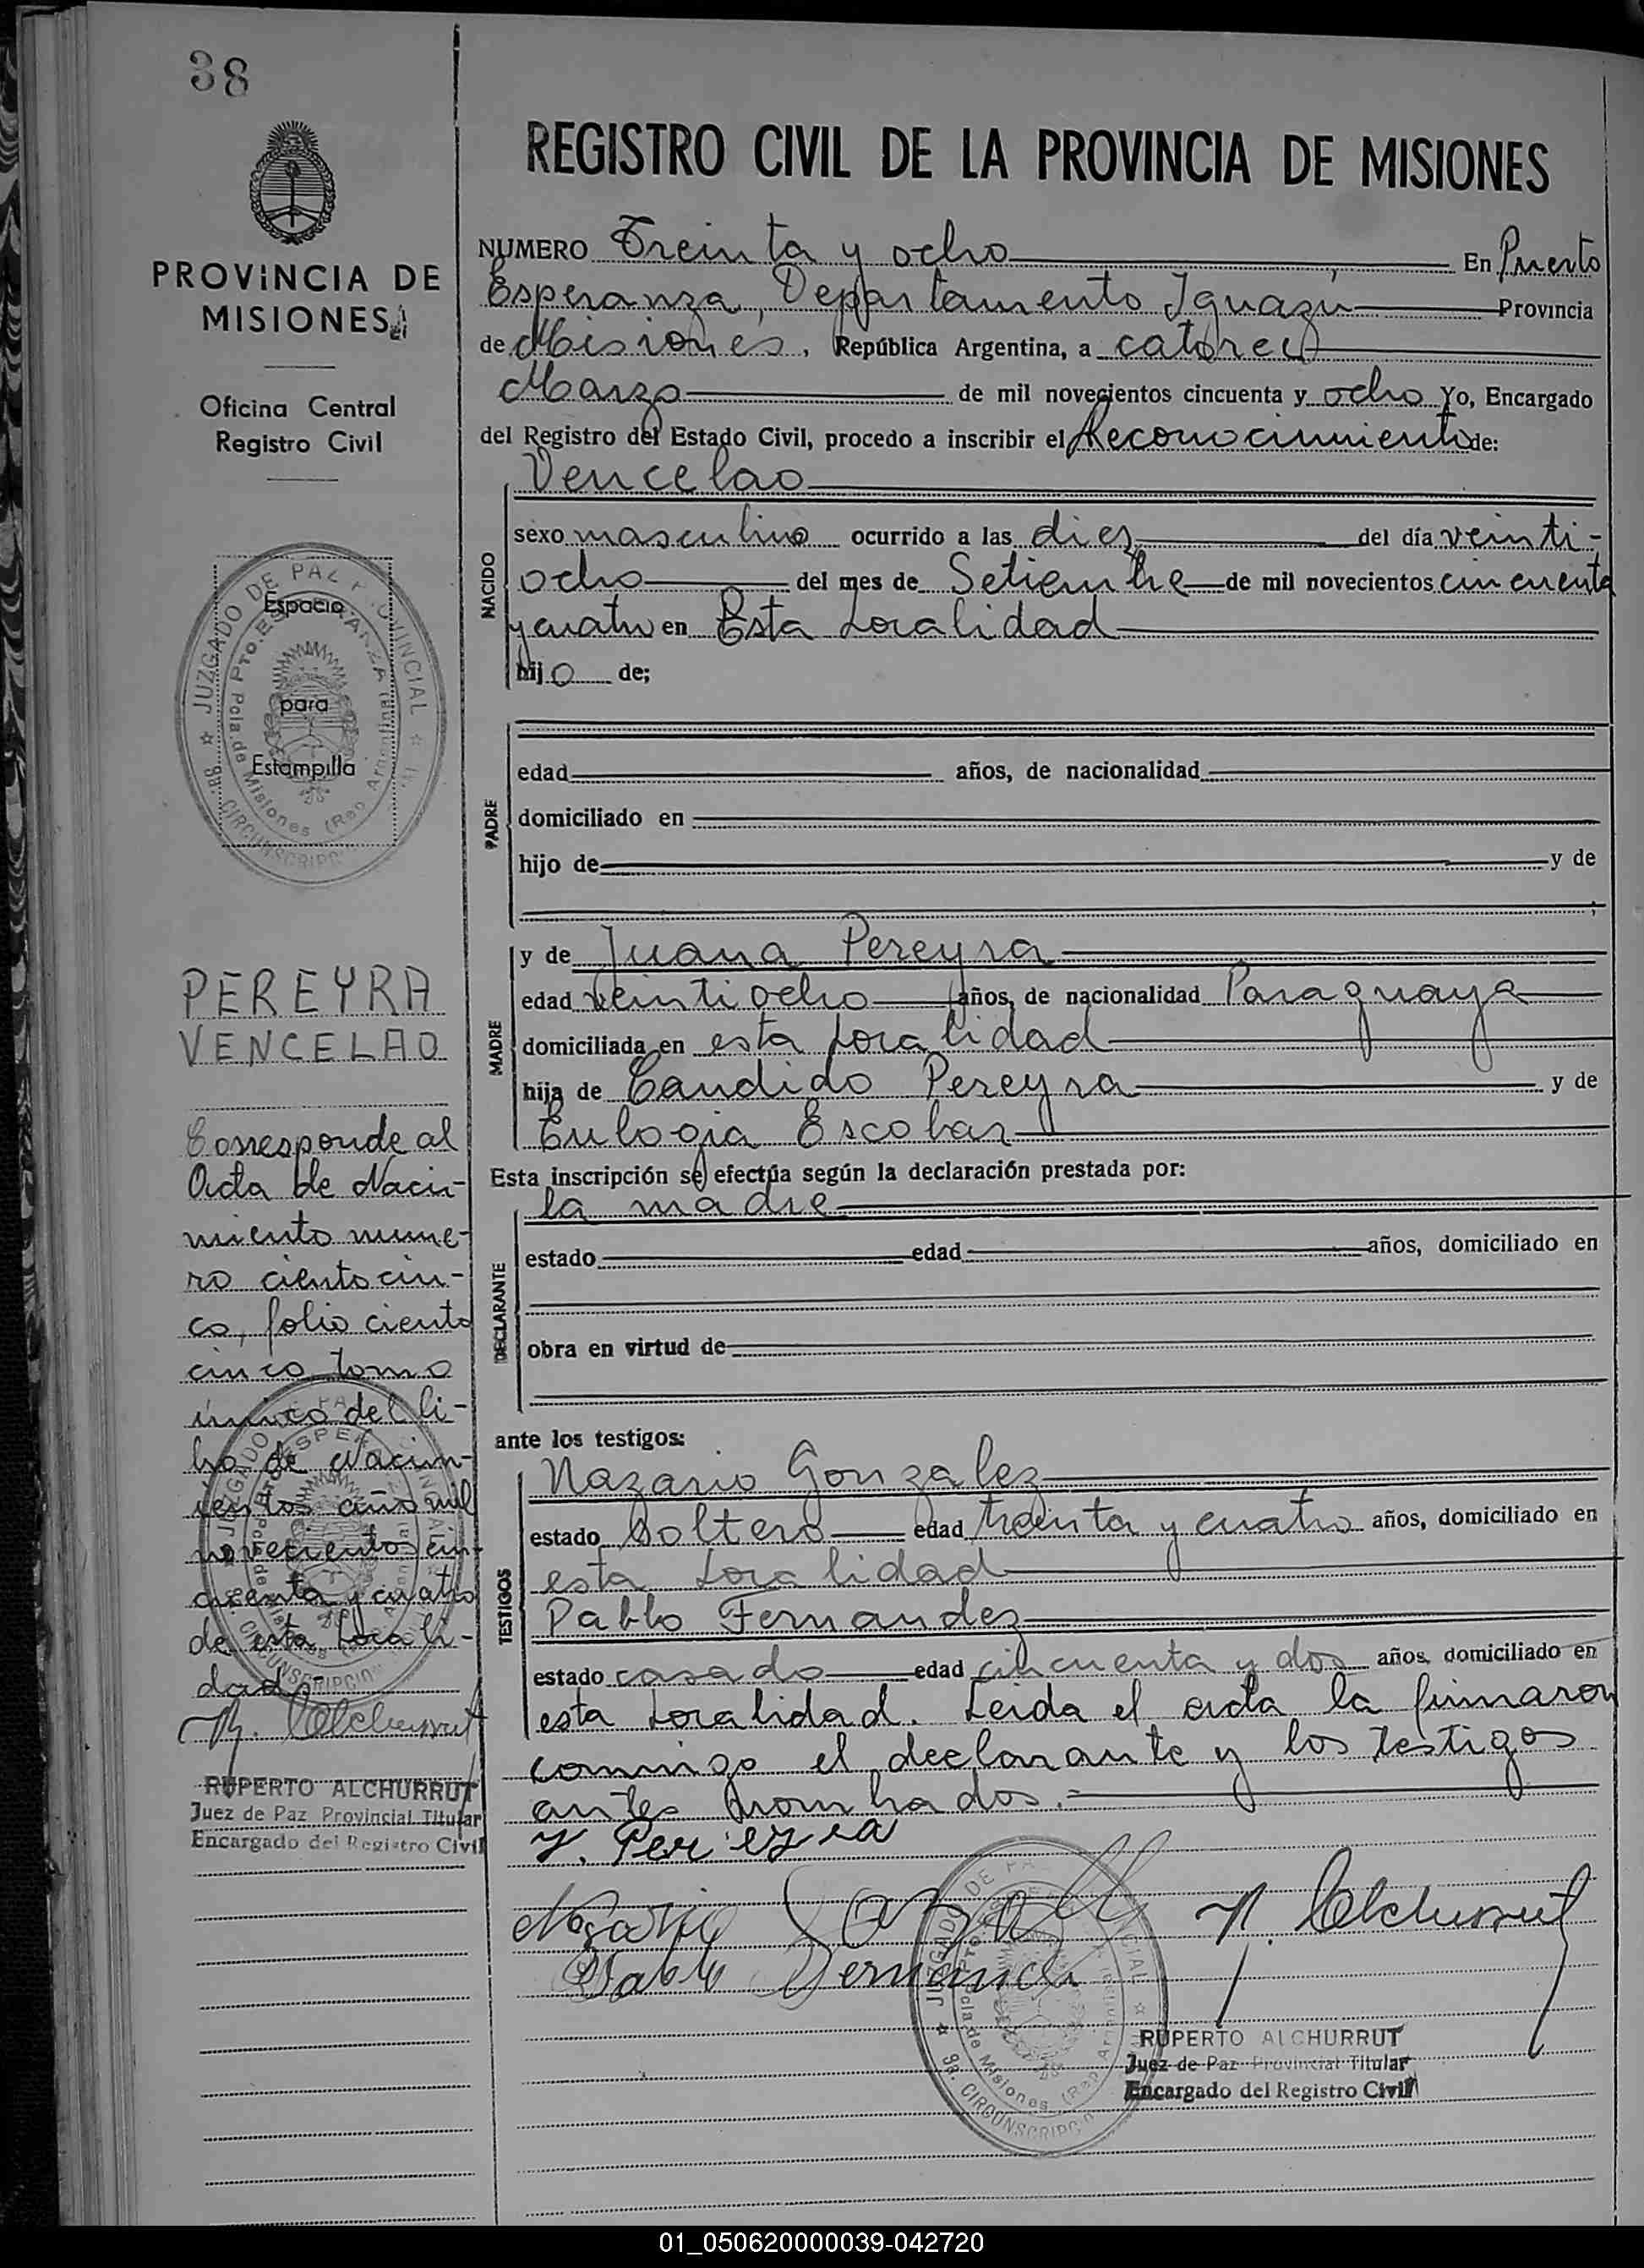 38
PROVINCIA DE
MISIONES
Oficina Central
Registro Civil
JUZGADO DE PAZ PROVINCIAL
Pto. ESPERANZA
Pcia. de Misiones (Rep. Argentina)
9a. CIRCUNSCRIPC
Espacio
para
Estampilla
PEREYRA
VENCELAO
Corresponde al
Acta de Naci-
miento nume-
ro ciento cin-
co, folio ciento
cinco tomo
único del li-
bro de Nacim-
ientos año mil
novecientos cin-
cuenta y cuatro
de esta Locali-
dad
R. Alchurrut
RUPERTO ALCHURRUT
Juez de Paz Provincial Titular
Encargado del Registro Civil
REGISTRO CIVIL DE LA PROVINCIA DE MISIONES
NUMERO Treinta y ocho En Puerto
Esperanza, Departamento Iguazú Provincia
de Misiones, República Argentina, a catorce
Marzo de mil novecientos cincuenta y ocho Yo, Encargado
del Registro del Estado Civil, procedo a inscribir el Reconocimiento de:
Vencelao
NACIDO
sexo masculino ocurrido a las diez del día veinti-
ocho del mes de Setiembre de mil novecientos cincuenta
y cuatro en Esta Localidad
hijo de;
PADRE
edad años, de nacionalidad
domiciliado en
hijo de y de
;
MADRE
y de Juana Pereyra
edad veintiocho años, de nacionalidad Paraguaya
domiciliada en esta Localidad
hija de Candido Pereyra y de
Eulogia Escobar
Esta inscripción se efectúa según la declaración prestada por:
la madre
DECLARANTE
estado edad años, domiciliado en
obra en virtud de
ante los testigos:
TESTIGOS
Nazario Gonzalez
estado Soltero edad treinta y cuatro años, domiciliado en
esta Localidad
Pablo Fernandez
estado casado edad cincuenta y dos años, domiciliado en
esta Localidad. Leida el acta la firmaron
conmigo el declarante y los testigos
antes nombrados.=
J. Pereyra
Nazario Gonzalez R. Alchurrut
Pablo Fernandez
JUZGADO DE PA CIAL
Pcia. de Misiones (Rep. Argentina)
9a. CIRCUNSCRIPCIO
RUPERTO ALCHURRUT
Juez de Paz Provincial Titular
Encargado del Registro Civil
01_050620000039-042720